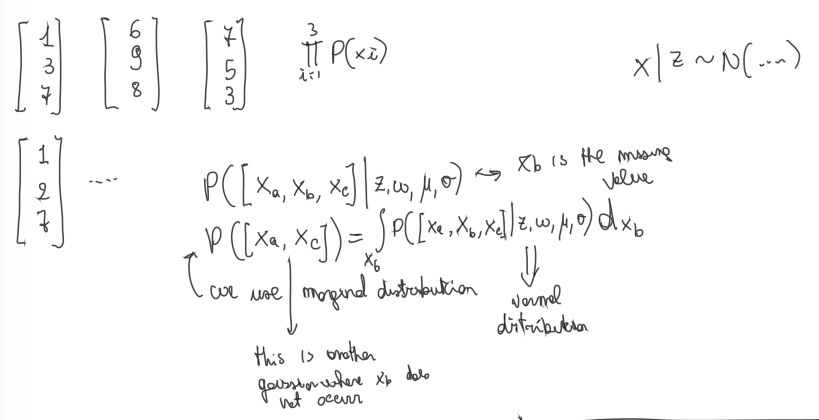 [1 3 7] [6 9 8] [7 5 3] ∏_{i=1}^{3} P(xi) x|z ~ N(....)
[1 2 7] ....
P([xa, xb, xc]|z,ω,μ,σ) ↔ xb is the missing value
P([xa, xc]) = ∫_{xb} P([xa, xb, xc]|z,ω,μ,σ) dxb
we use marginal distribution
normal distribution
this is another
gaussian where xb does
not occur